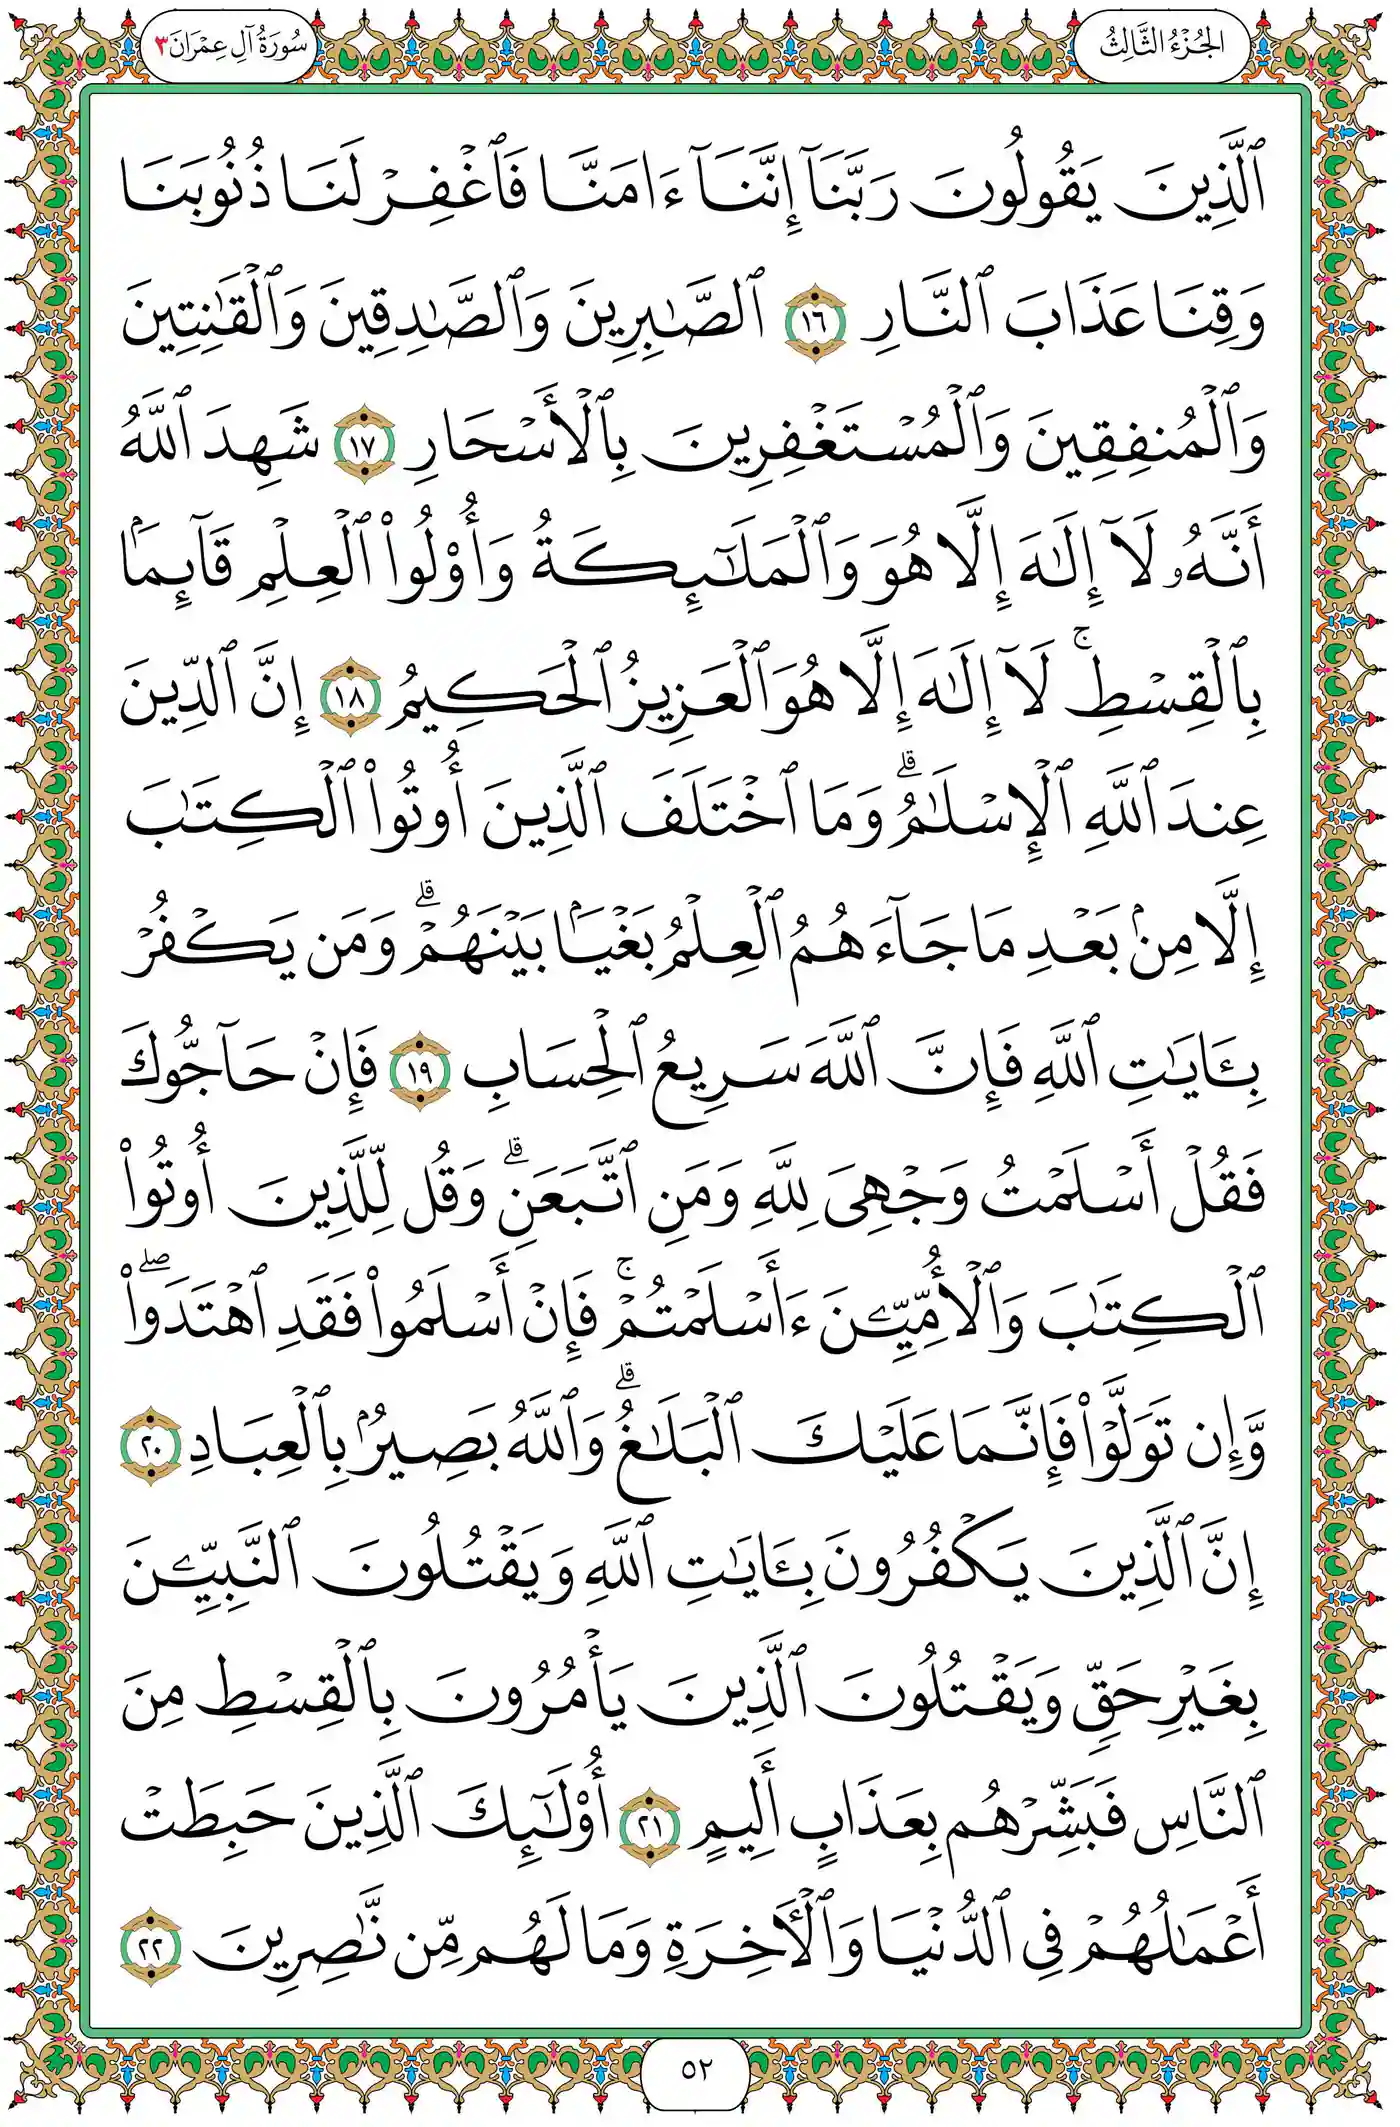 الجُزْءُ الثَّالِثُ
سُورَةُ آلِ عِمْرَانَ ٣
ٱلَّذِينَ يَقُولُونَ رَبَّنَآ إِنَّنَآ ءَامَنَّا فَٱغْفِرْ لَنَا ذُنُوبَنَا
وَقِنَا عَذَابَ ٱلنَّارِ ١٦ ٱلصَّٰبِرِينَ وَٱلصَّٰدِقِينَ وَٱلْقَٰنِتِينَ
وَٱلْمُنفِقِينَ وَٱلْمُسْتَغْفِرِينَ بِٱلْأَسْحَارِ ١٧ شَهِدَ ٱللَّهُ
أَنَّهُۥ لَآ إِلَٰهَ إِلَّا هُوَ وَٱلْمَلَٰٓئِكَةُ وَأُو۟لُوا۟ ٱلْعِلْمِ قَآئِمَۢا
بِٱلْقِسْطِ ۚ لَآ إِلَٰهَ إِلَّا هُوَ ٱلْعَزِيزُ ٱلْحَكِيمُ ١٨ إِنَّ ٱلدِّينَ
عِندَ ٱللَّهِ ٱلْإِسْلَٰمُ ۗ وَمَا ٱخْتَلَفَ ٱلَّذِينَ أُوتُوا۟ ٱلْكِتَٰبَ
إِلَّا مِنۢ بَعْدِ مَا جَآءَهُمُ ٱلْعِلْمُ بَغْيَۢا بَيْنَهُمْ ۗ وَمَن يَكْفُرْ
بِـَٔايَٰتِ ٱللَّهِ فَإِنَّ ٱللَّهَ سَرِيعُ ٱلْحِسَابِ ١٩ فَإِنْ حَآجُّوكَ
فَقُلْ أَسْلَمْتُ وَجْهِىَ لِلَّهِ وَمَنِ ٱتَّبَعَنِ ۗ وَقُل لِّلَّذِينَ أُوتُوا۟
ٱلْكِتَٰبَ وَٱلْأُمِّيِّـۧنَ ءَأَسْلَمْتُمْ ۚ فَإِنْ أَسْلَمُوا۟ فَقَدِ ٱهْتَدَوا۟ ۖ
وَّإِن تَوَلَّوْا۟ فَإِنَّمَا عَلَيْكَ ٱلْبَلَٰغُ ۗ وَٱللَّهُ بَصِيرٌۢ بِٱلْعِبَادِ ٢٠
إِنَّ ٱلَّذِينَ يَكْفُرُونَ بِـَٔايَٰتِ ٱللَّهِ وَيَقْتُلُونَ ٱلنَّبِيِّـۧنَ
بِغَيْرِ حَقٍّ وَيَقْتُلُونَ ٱلَّذِينَ يَأْمُرُونَ بِٱلْقِسْطِ مِنَ
ٱلنَّاسِ فَبَشِّرْهُم بِعَذَابٍ أَلِيمٍ ٢١ أُو۟لَٰٓئِكَ ٱلَّذِينَ حَبِطَتْ
أَعْمَٰلُهُمْ فِى ٱلدُّنْيَا وَٱلْـَٔاخِرَةِ وَمَا لَهُم مِّن نَّٰصِرِينَ ٢٢
٥٢